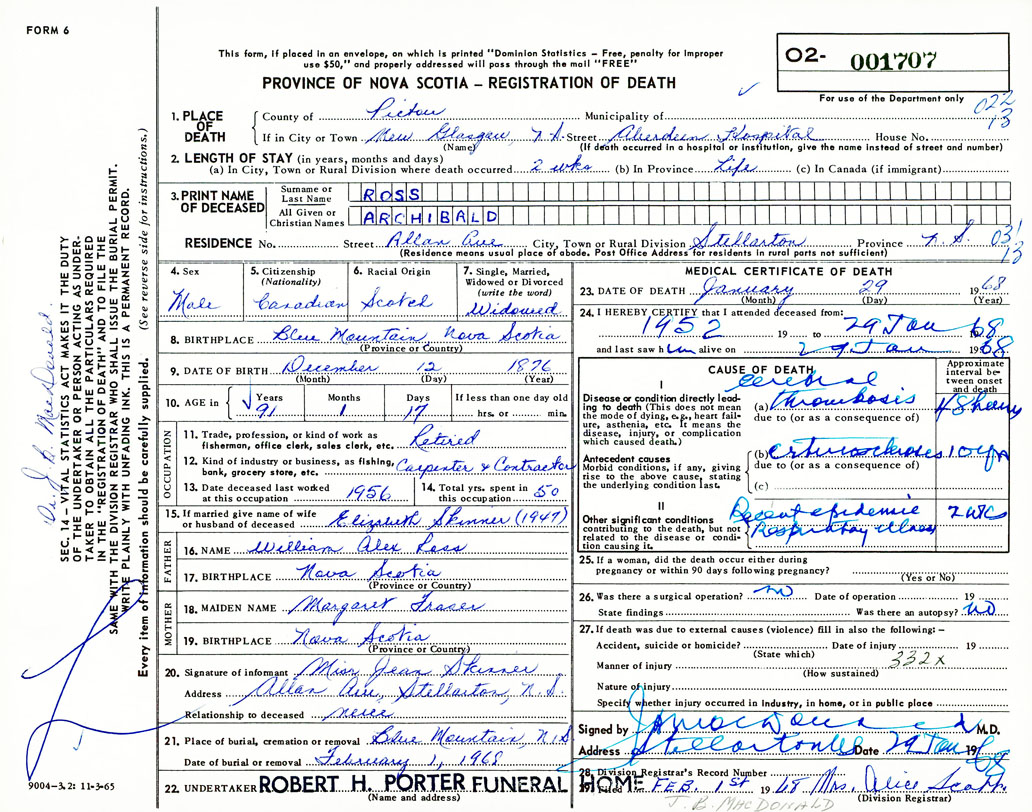 FORM 6
This form, if placed in an envelope, on which is printed "Dominion Statistics – Free, penalty for improper
use $50," and properly addressed will pass through the mail "FREE"
PROVINCE OF NOVA SCOTIA – REGISTRATION OF DEATH
O2- 001707
For use of the Department only
022
13
1. PLACE OF DEATH
County of Pictou Municipality of
If in City or Town New Glasgow, N.S. Street Aberdeen Hospital House No.
(Name) (If death occurred in a hospital or institution, give the name instead of street and number)
2. LENGTH OF STAY (in years, months and days)
(a) In City, Town or Rural Division where death occurred 2 wks (b) In Province Life (c) In Canada (if immigrant)
3. PRINT NAME OF DECEASED
Surname or Last Name ROSS
All Given or Christian Names ARCHIBALD
RESIDENCE No. Street Allan Ave City, Town or Rural Division Stellarton Province N.S. 031
13
(Residence means usual place of abode. Post Office Address for residents in rural parts not sufficient)
4. Sex
Male
5. Citizenship
(Nationality)
Canadian
6. Racial Origin
Scotch
7. Single, Married,
Widowed or Divorced
(write the word)
Widowed
8. BIRTHPLACE Blue Mountain, Nova Scotia
(Province or Country)
9. DATE OF BIRTH December 12 1876
(Month) (Day) (Year)
10. AGE in Years Months Days If less than one day old
91 1 17 hrs. or min.
OCCUPATION
11. Trade, profession, or kind of work as
fisherman, office clerk, sales clerk, etc. Retired
12. Kind of industry or business, as fishing,
bank, grocery store, etc. Carpenter & Contractor
13. Date deceased last worked
at this occupation 1956
14. Total yrs. spent in
this occupation 50
15. If married give name of wife
or husband of deceased Elizabeth Skinner (1947)
FATHER
16. NAME William Alex Ross
17. BIRTHPLACE Nova Scotia
(Province or Country)
MOTHER
18. MAIDEN NAME Margaret Fraser
19. BIRTHPLACE Nova Scotia
(Province or Country)
20. Signature of informant Miss Jean Skinner
Address Allan Ave, Stellarton, N.S.
Relationship to deceased niece
21. Place of burial, cremation or removal Blue Mountain, N.S
Date of burial or removal February 1, 1968
22. UNDERTAKER ROBERT H. PORTER FUNERAL HOME
(Name and address)
MEDICAL CERTIFICATE OF DEATH
23. DATE OF DEATH January 29 1968
(Month) (Day) (Year)
24. I HEREBY CERTIFY that I attended deceased from:
1952 19 to 29 Jan 68
and last saw him alive on 29 Jan 1968
CAUSE OF DEATH
Approximate interval between onset and death
I
Disease or condition directly leading
to death (This does not mean
the mode of dying, e.g., heart failure,
asthenia, etc. It means the
disease, injury, or complication
which caused death.)
cerebral
(a) thrombosis 48 hours
due to (or as a consequence of)
Antecedent causes
Morbid conditions, if any, giving
rise to the above cause, stating
the underlying condition last.
(b) arteriosclerosis 10 yrs
due to (or as a consequence of)
(c)
II
Other significant conditions
contributing to the death, but not
related to the disease or condition
causing it.
Recent epidemic 2 wks
Respiratory illness
25. If a woman, did the death occur either during
pregnancy or within 90 days following pregnancy?
(Yes or No)
26. Was there a surgical operation? no Date of operation 19
State findings Was there an autopsy? no
27. If death was due to external causes (violence) fill in also the following: –
Accident, suicide or homicide? Date of injury 19
(State which)
332x
Manner of injury
(How sustained)
Nature of injury
Specify whether injury occurred in Industry, in home, or in public place
Signed by M.D.
Address Stellarton NS Date 29 Jan 1968
28. Division Registrar's Record Number
Filed FEB. 1st 1968 Mrs. Alice
(Division Registrar)
J. B. MACDONALD
Dr. J. B. MacDonald
SEC. 14 – VITAL STATISTICS ACT MAKES IT THE DUTY
OF THE UNDERTAKER OR PERSON ACTING AS UNDER-
TAKER TO OBTAIN ALL THE PARTICULARS REQUIRED
IN THE "REGISTRATION OF DEATH" AND TO FILE THE
SAME WITH THE DIVISION REGISTRAR WHO SHALL ISSUE THE BURIAL PERMIT.
WRITE PLAINLY WITH UNFADING INK. THIS IS A PERMANENT RECORD.
Every item of information should be carefully supplied. (See reverse side for instructions.)
9004-3.2: 11-3-65